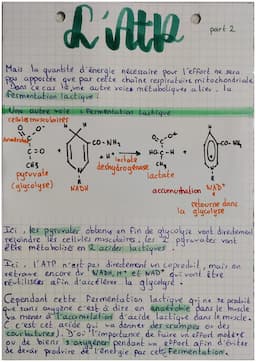 L'ATP
part 2
Mais la quantité d'énergie nécessaire pour l'effort ne sera
pas apportée que par cette chaîne respiratoire mitochondriale
Dans ce cas là, une autre voie métabolique a lieu : la
fermentation lactique :
Une autre voie : Fermentation lactique
cellules musculaires
Anaérobie
CO-NH₂
CO-NH₂
CH₃
CH₃
+
+
H⁺
lactate
déshydrogénase
pyruvate
(glycolyse)
NADH
lactate
accumulation
NAD⁺
retourne dans
la glycolyse
Ici, les pyruvates obtenus en fin de glycolyse vont directement
rejoindre les cellules musculaires, les 2 pyruvates vont
être métabolisé en 2 acides lactiques
Ici, l'ATP n'est pas directement un coproduit, mais on
retrouve encore du NADH, H⁺ et NAD⁺ qui vont être
réutilisés afin d'accélérer la glycolyse.
Cependant cette Fermentation lactique qui ne se produit
que sans oxygène c'est à dire en anaérobie dans le muscle
va mener à l'accumulation d'acide lactique dans le muscle.
C'est cet acide qui va donner des crampes ou des
courbatures). D'où l'importance de faire un effort modéré
ou de bien s'oxygéner pendant un effort afin d'éviter
de devoir produire de l'énergie par cette Fermentation.